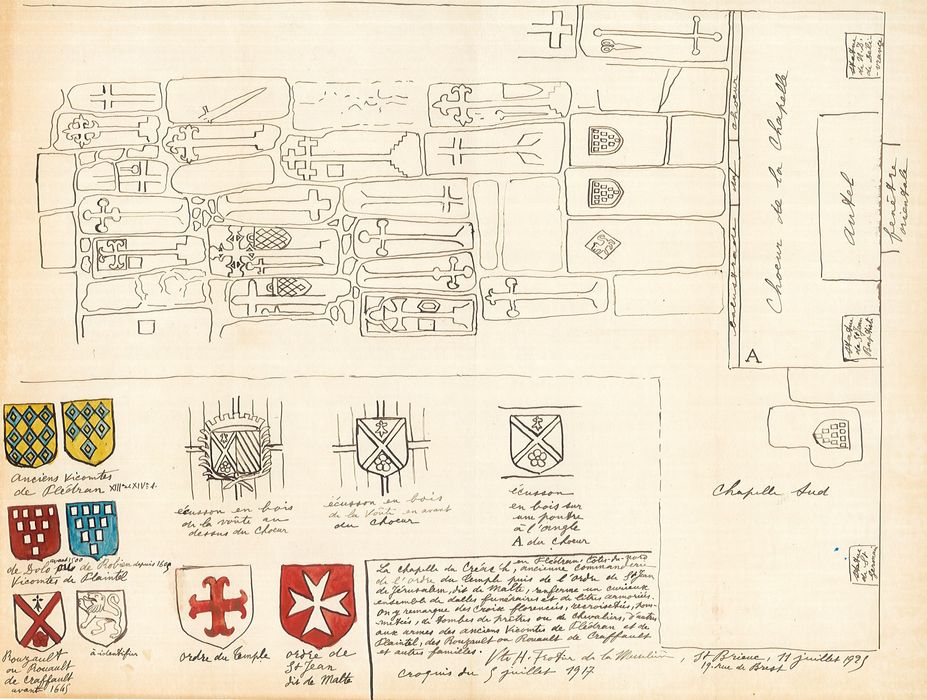 statue
de N. D.
de Déli-
-vrance
Choeur de la Chapelle
autel
fenêtre
orientale
balustrade nef choeur
statue
de St Jean
Baptiste
A
Chapelle Sud
statue
de St
Germain
Anciens Vicomtes
de Plédran XIIIe et XIVe s.
écusson en bois
de la voûte au
dessus du Choeur
écusson en bois
de la voûte en avant
du choeur
écusson
en bois sur
une poutre
à l'angle
A du choeur
de Bois de Robien depuis
Vicomtes de Plaintel
Rouzault
ou Rouault
de Craffault
avant 1645
à identifier
ordre du Temple
ordre de
St Jean
dit de Malte
La chapelle du Créac'h, en Plédran, Côtes-du-Nord
ancienne Commanderie
de l'ordre du Temple puis de l'ordre de St Jean
de Jérusalem, dit de Malte, renferme un curieux
ensemble de dalles funéraires et de litres armoriées.
On y remarque des croix florencées, recroisetées, pom-
-metées, de tombes de prêtres ou de chevaliers, d'autres
aux armes des anciens Vicomtes de Plédran et de
Plaintel, des Rouzault ou Rouault de Craffault
et autres familles.
Vte H. Frotier de la Messelière, St Brieuc, 11 juillet 1925
19, rue de Brest
croquis du 5 juillet 1917